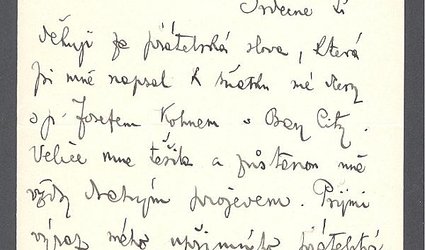 Srdečně Ti
děkuji za přátelská slova, která
jsi mně napsal k sňatku mé dcery
s p. Josefem Kohnem v Bay City.
Velice mne těšila a zůstanou mně
vždy drahým projevem. Přijmi
výraz mého upřímného přátelství